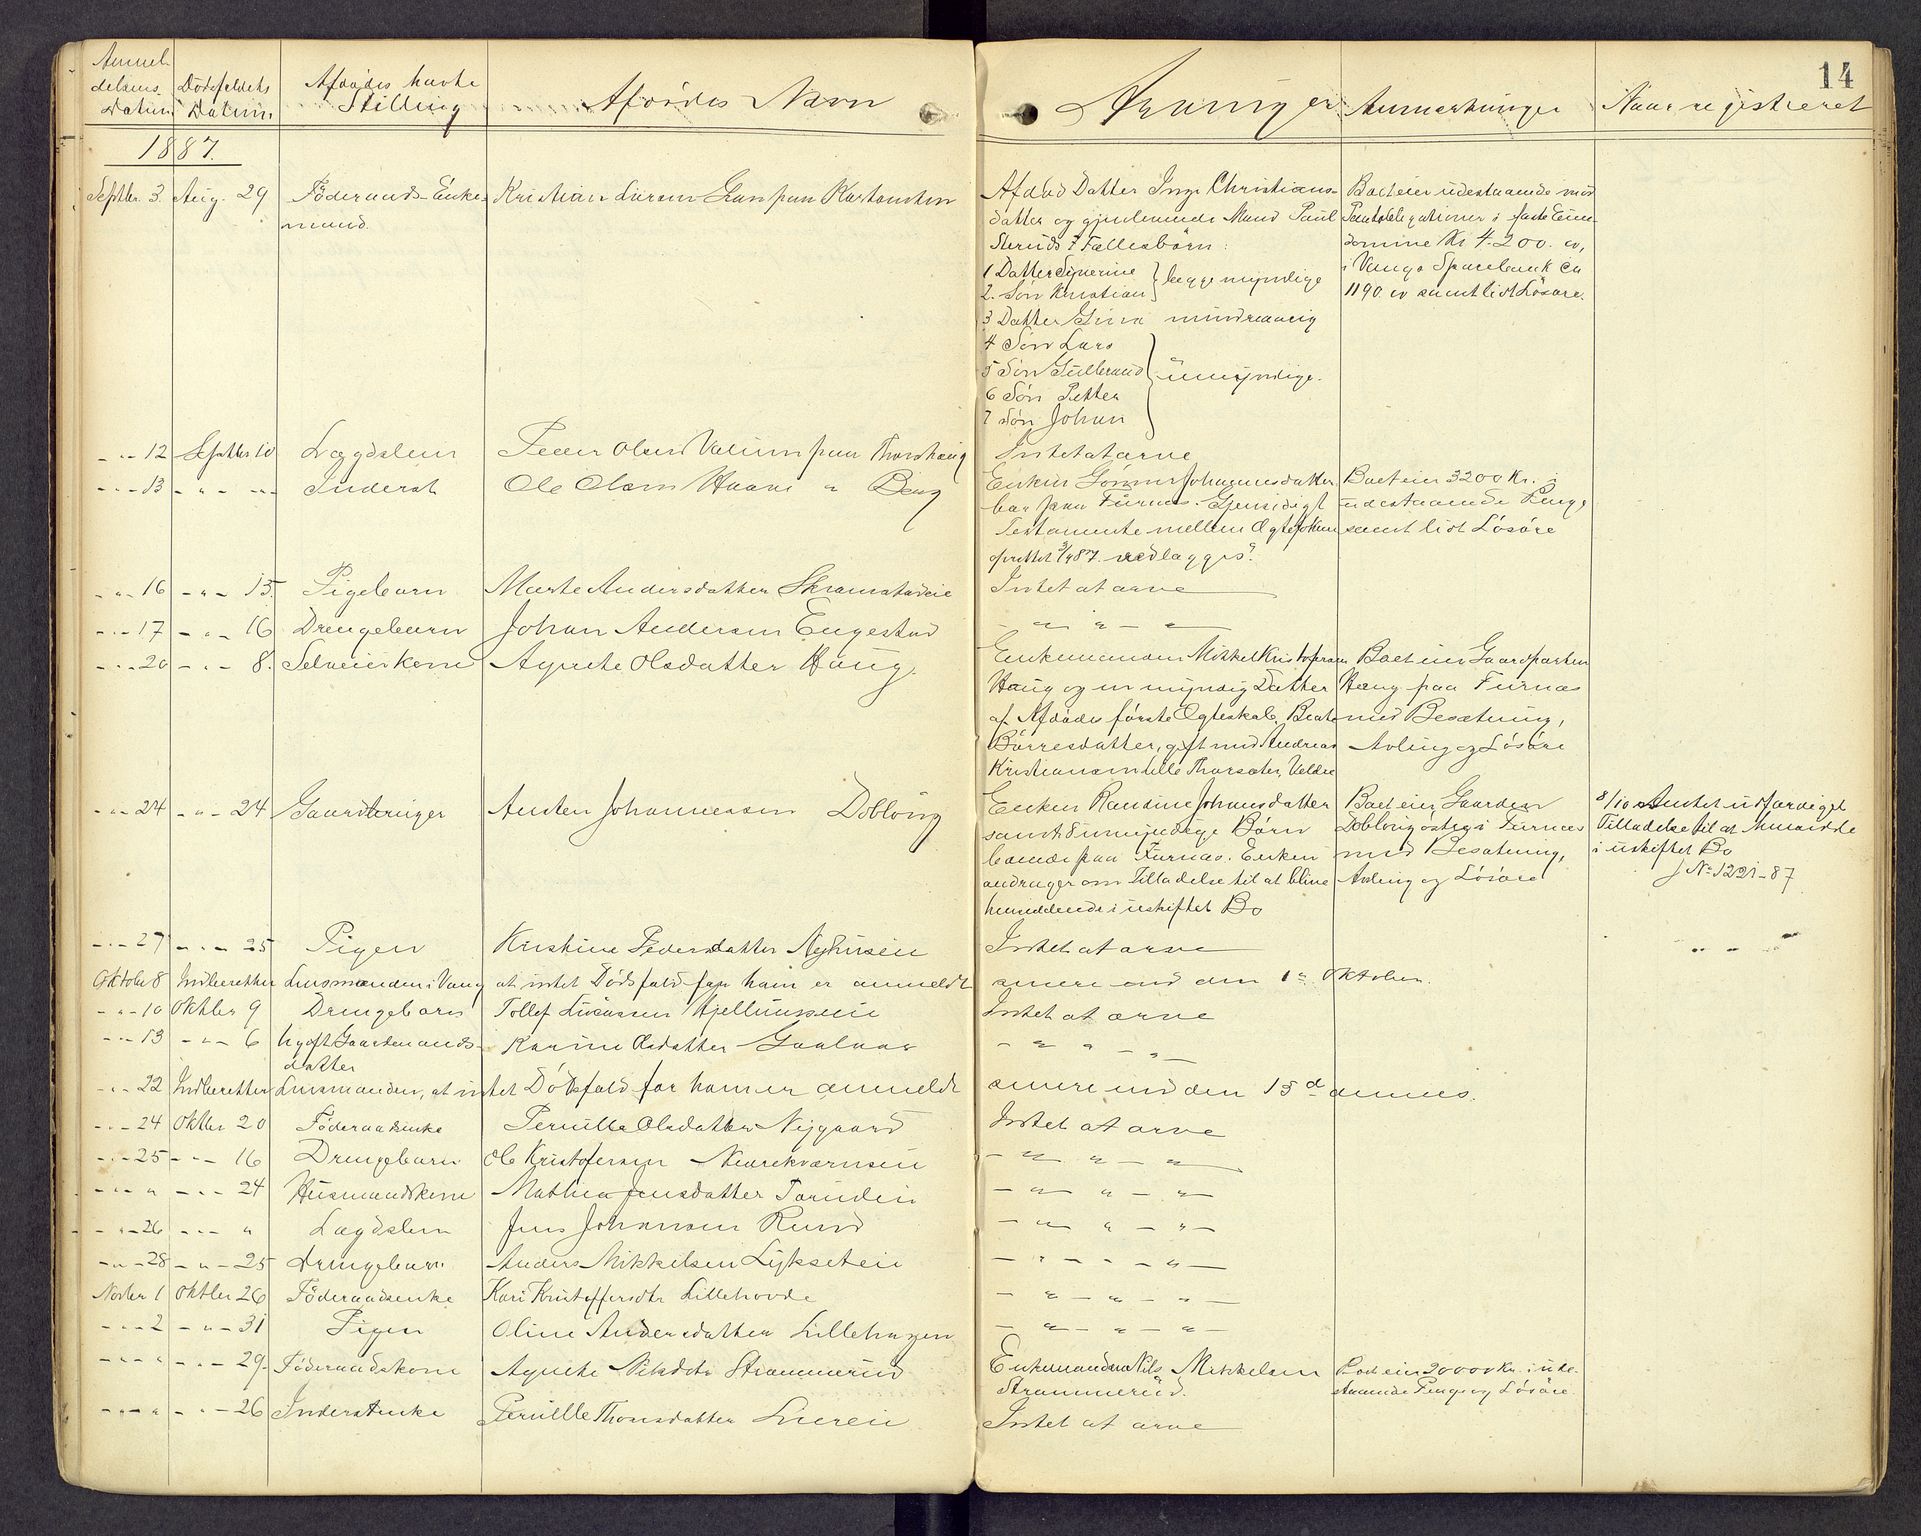 14
Anmel-
delsens
Datum
Dødsfaldets
Datum
Afdødes havte
Stilling
Afdødes Navn
Arvinger
Anmærkninger
Naar registreret
1887.
Septbr. 3. Aug. 29 Föderaads-Enke- Kristian Larsen paa
mand.
Afdød Datter Inge Christians-
datter og gjenlevende Mand Paul
7 Fællesbörn:
1 Datter Syverine
2. Søn Kristian } begge myndige
3 Datter Gina mindreaarig
4 Søn Lars
5 Søn Gulbrand
6 Søn Petter
7 Søn Johan } umyndige.
Boet eier udestaaende mod
Panteobligationer i faste Eien-
domme Kr 4.200. og
i Vangs Sparebank ca
1190. og samt lidt Løsøre.
- " - 12 Septbr 10 Lægdslem Peder Olsen Valum paa Thorshaug Intet at arve
- " - 13 - " - " - Inderst Ole Olsen " Berg
Enken Johannesdatter
bor paa Furnæs. Gjensidigt
Testamente mellem Ægtefolkene
oprettet 87. vedlægges?
Boet eier 3200 Kr. i
udestaaende Penge
samt lidt Løsøre
- " - 16 - " - 15. Pigebarn Marte Andersdatter Intet at arve
- " - 17 - " - 16 Drengebarn Johan Andersen Engestad - " - " - " -
- " - 20 - " - 8. Selveierkone Agnete Olsdatter Haug.
Enkemanden Mikkel Kristofersen
Haug og en myndig Datter
af Afdødes første Ægteskab, Beate
Børresdatter, gift med Andreas
Kristiansen Thorsæter, Veldre
Boet eier Gaardparten
Haug paa Furnæs
med Besætning,
Avling og Løsøre
- " - 24 - " - 24 Gaardbruger Anton Johannessen Dobloug
Enken Randine Johansdatter
samt 8 umyndige Børn
boende paa Furnæs. Enken
andrager om Tilladelse til at blive
hensiddende i uskiftet Bo
Boet eier Gaarden
Dobloug østre i Furnæs
med Besætning,
Avling og Løsøre
8/10 Amtet udfærdiget
Tilladelse til at hensidde
i uskiftet Bo
J No 1221-87
- " - 27 - " - 25 Pigen Kirstine Pedersdatter Nyhuseie Intet at arve
Oktober 8 Indberetter Lensmanden i Vang at intet Dødsfald for ham er anmeldt senere end den 1ste Oktober.
- " - 10 Oktbr 9 Drengebarn Tollef Hjellumseie Intet at arve
- " - 13 - " - 6 Ugift Gaardmands- Karine Olsdatter - " - " -
datter
- " - 22 Indberetter Lensmanden, at intet Dødsfald for ham er anmeldt senere end den 15de dennes.
- " - 24 Oktbr 20 Föderaadsenke Pernille Olsdatter Nygaard Intet at arve
- " - 25 - " - 16 Drengebarn Ole Kristofersen - " - " - " -
- " - " - " - 24 Husmandskone Mathea Jensdatter - " - " - " -
- " - 26 - " - " Lægdslem Jens Johansen - " - " - " -
- " - 28 - " - 25 Drengebarn Anders Mikkelsen - " - " - " -
Novbr 1 Oktbr 26 Föderaadsenke Kari Kristoffersdtr Lillehovde - " - " - " -
- " - 2 - " - 31 Pigen Oline Andersdatter Lillehagen - " - " - " -
- " - " - " - 29. Föderaadskone Agnete Nilsdtr Strammerud
Enkemanden Nils Mikkelsen
Strammerud.
Boet eier 20000 Kr. i ude-
staaende Penge og Løsøre.
- " - " - " - 26 Inderstenke Pernille Thomsdatter Intet at arve